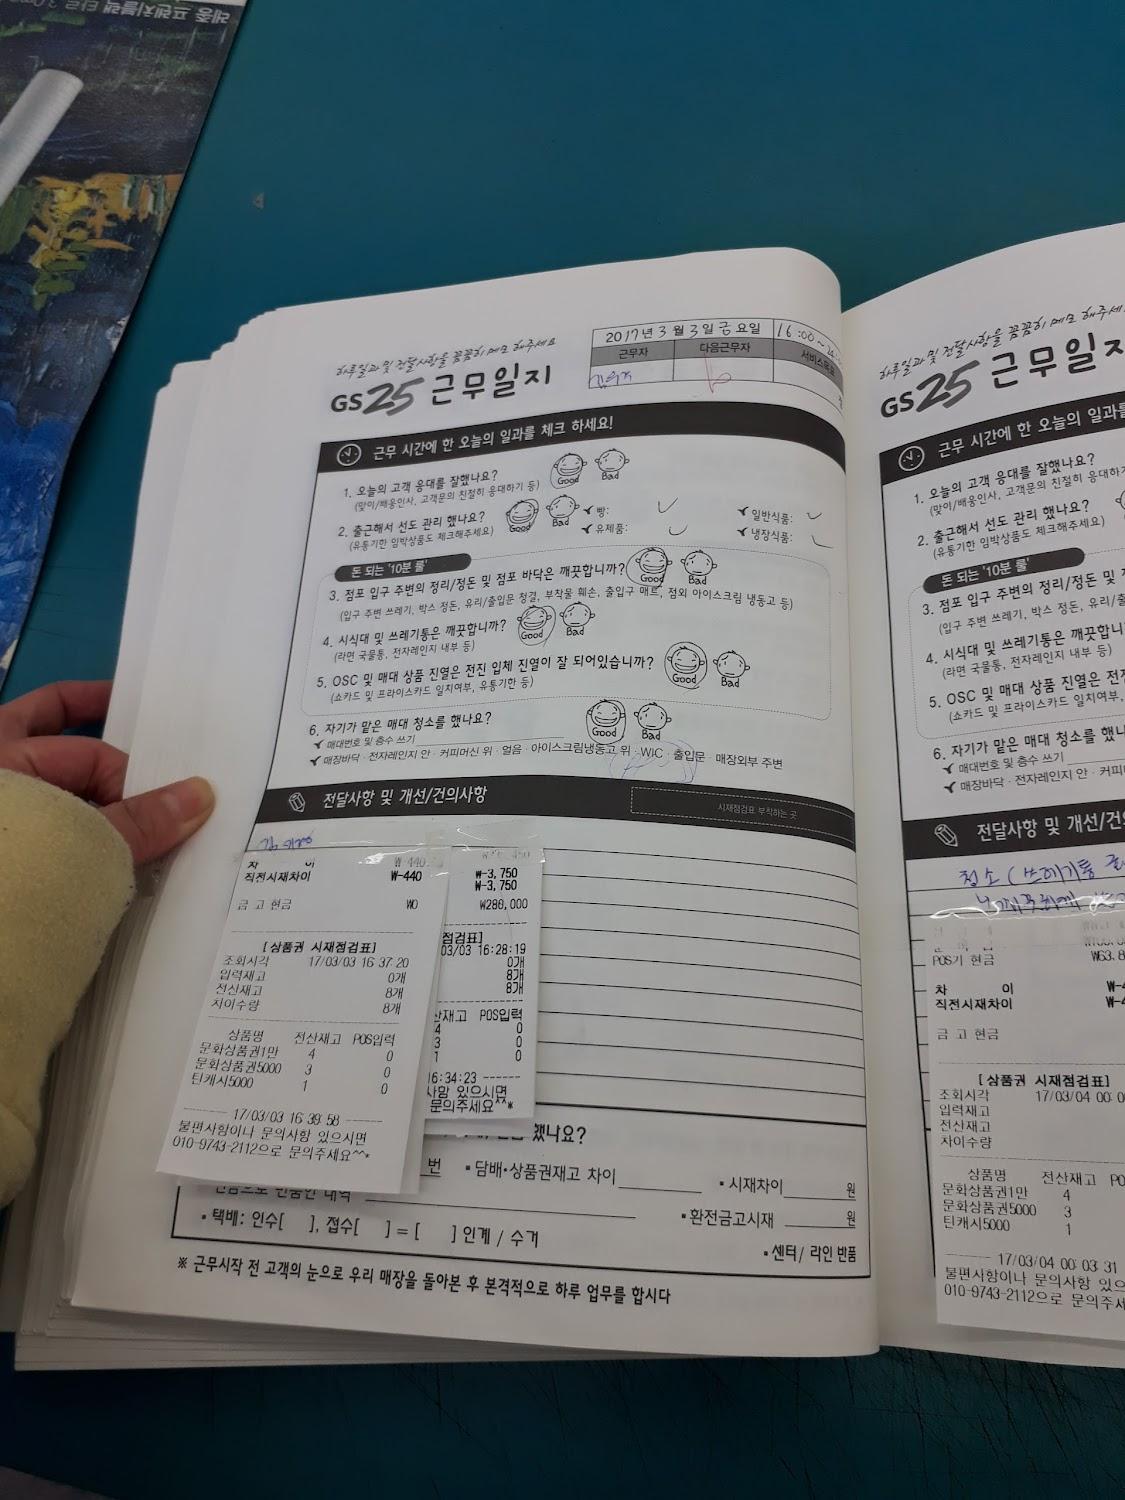 레종 프렌치블랙 타르 3.0mg
하루일과 및 전달사항을 꼼꼼히 메모 해주세요
GS25 근무일지
2017년 3월 3일 금요일 16:00~24:
근무자 다음근무자 서비스목표
근무 시간에 한 오늘의 일과를 체크 하세요!
1. 오늘의 고객 응대를 잘했나요? Good Bad
(맞이/배웅인사, 고객문의 친절히 응대하기 등)
2. 출근해서 선도 관리 했나요? Good Bad 빵: 일반식품:
(유통기한 임박상품도 체크해주세요) 유제품: 냉장식품:
돈 되는 '10분 룰'
3. 점포 입구 주변의 정리/정돈 및 점포 바닥은 깨끗합니까? Good Bad
(입구 주변 쓰레기, 박스 정돈, 유리/출입문 청결, 부착물 훼손, 출입구 매트, 점외 아이스크림 냉동고 등)
4. 시식대 및 쓰레기통은 깨끗합니까? Good Bad
(라면 국물통, 전자레인지 내부 등)
5. OSC 및 매대 상품 진열은 전진 입체 진열이 잘 되어있습니까? Good Bad
(쇼카드 및 프라이스카드 일치여부, 유통기한 등)
6. 자기가 맡은 매대 청소를 했나요? Good Bad
매대번호 및 층수 쓰기
매장바닥 · 전자레인지 안 · 커피머신 위 · 얼음 · 아이스크림냉동고 위 · WIC · 출입문 · 매장외부 주변
전달사항 및 개선/건의사항 시재점검표 부착하는 곳
차 이 ₩-440
직전시재차이 ₩-440
금 고 현금 ₩0
[상품권 시재점검표]
조회시각 17/03/03 16:37:20
입력재고 0개
전산재고 8개
차이수량 8개
상품명 전산재고 POS입력
문화상품권1만 4 0
문화상품권5000 3 0
틴캐시5000 1 0
17/03/03 16:39:58
불편사항이나 문의사항 있으시면
010-9743-2112으로 문의주세요^^*
₩-3,750
₩-3,750
₩280,000
점검표]
03/03 16:28:19
0개
8개
8개
산재고 POS입력
4 0
3 0
1 0
16:34:23
사항 있으시면
문의주세요^^*
했나요?
번 ▪ 담배·상품권재고 차이 ▪ 시재차이 원
▪ 환전금고시재 원
▪ 택배: 인수[ ], 접수[ ] = [ ] 인계 / 수거 ▪ 센터/ 라인 반품
※ 근무시작 전 고객의 눈으로 우리 매장을 돌아본 후 본격적으로 하루 업무를 합시다
하루일과 및 전달사항을 꼼꼼히 메모 해주세
GS25 근무일지
근무 시간에 한 오늘의 일과
1. 오늘의 고객 응대를 잘했나요?
(맞이/배웅인사, 고객문의 친절히 응대하
2. 출근해서 선도 관리 했나요?
(유통기한 임박상품도 체크해주세요)
돈 되는 '10분 룰'
3. 점포 입구 주변의 정리/정돈 및
(입구 주변 쓰레기, 박스 정돈, 유리/출
4. 시식대 및 쓰레기통은 깨끗합니
(라면 국물통, 전자레인지 내부 등)
5. OSC 및 매대 상품 진열은 전진
(쇼카드 및 프라이스카드 일치여부, 유통
6. 자기가 맡은 매대 청소를 했나
매대번호 및 층수 쓰기
매장바닥 · 전자레인지 안 · 커피
전달사항 및 개선/건
청소 (쓰레기통
POS기 현금 ₩63,8
차 이 ₩-4
직전시재차이 ₩-4
금 고 현금
[상품권 시재점검표]
조회시각 17/03/04 00:0
입력재고
전산재고
차이수량
상품명 전산재고 PO
문화상품권1만 4
문화상품권5000 3
틴캐시5000 1
17/03/04 00:03:31
불편사항이나 문의사항 있으
010-9743-2112으로 문의주세